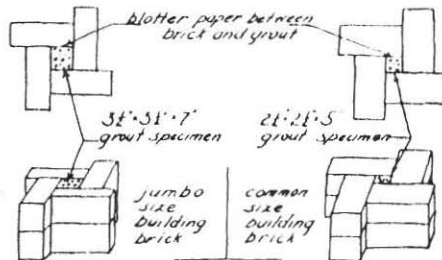 blotter paper between
brick and grout
grout specimen
grout specimen
jumbo
size
building
brick
common
size
building
brick